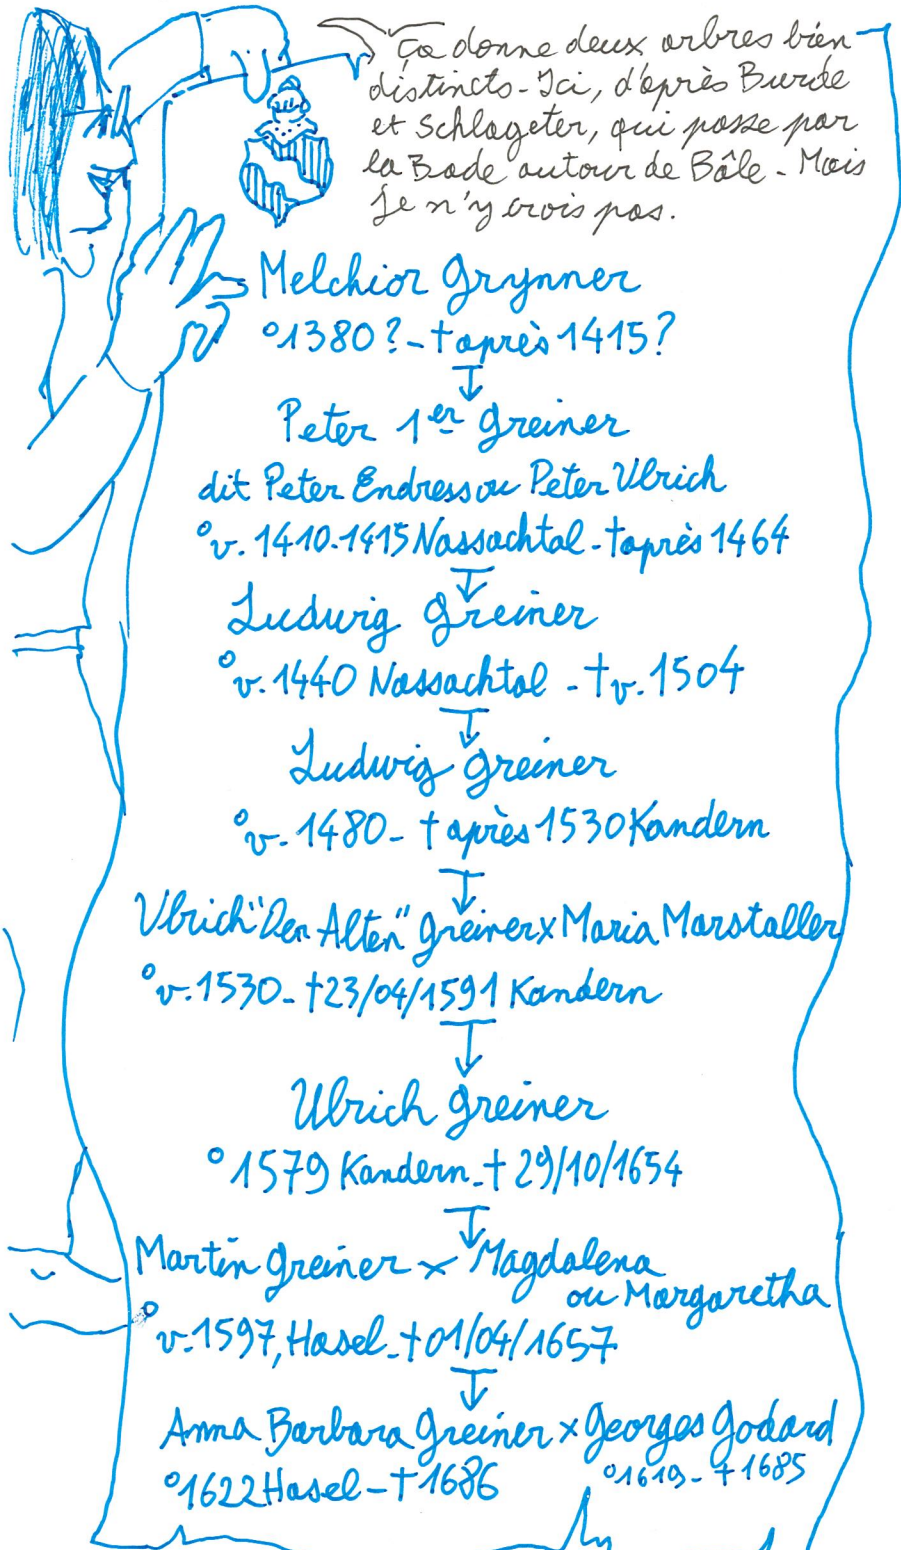 Ça donne deux arbres bien
distincts - Ici, d'après Burde
et Schlageter, qui passe par
la Bade autour de Bâle - Mais
je n'y crois pas.
Melchior Grynner
°1380? - † après 1415?
Peter 1er Greiner
dit Peter Endress ou Peter Ulrich
°v. 1410-1415 Nassachtal - † après 1464
Ludwig Greiner
°v. 1440 Nassachtal - † v. 1504
Ludwig Greiner
°v. 1480 - † après 1530 Kandern
Ulrich "Der Alten" Greiner x Maria Marstaller
°v. 1530 - † 23/04/1591 Kandern
Ulrich Greiner
°1579 Kandern - † 29/10/1654
Martin Greiner x Magdalena
ou Margaretha
°v. 1597, Hasel - † 01/04/1657
Anna Barbara Greiner x Georges Godard
°1622 Hasel - † 1686 °1619 - † 1685